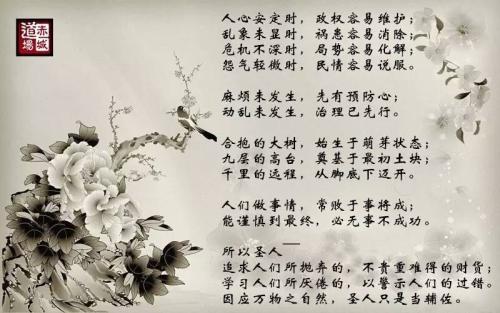 赤城
道場
人心安定时，政权容易维护；
乱象未显时，祸患容易消除；
危机不深时，局势容易化解；
怨气轻微时，民情容易说服。
麻烦未发生，先有预防心；
动乱未发生，治理已先行。
合抱的大树，始生于萌芽状态；
九层的高台，奠基于最初土块；
千里的远程，从脚底下迈开。
人们做事情，常败于事将成；
能谨慎到最终，必无事不成功。
所以圣人——
追求人们所抛弃的，不贵重难得的财货；
学习人们所厌倦的，以警示人们的过错。
因应万物之自然，圣人只是当辅佐。